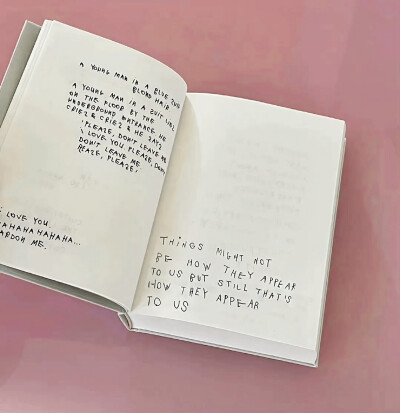 A YOUNG MAN IN A BLUE SUIT
BLOND HAIR
A YOUNG MAN IN A SUIT LIES
ON THE FLOOR BY THE
UNDERGROUND ENTRANCE. HE
CRIES & CRIES & HE SAYS
: PLEASE, DON'T LEAVE ME
I LOVE YOU PLEASE, DON'T
DON'T LEAVE ME
PLEASE, PLEASE,
I LOVE YOU.
HAHAHAHAHAHA...
PARDON ME.
THINGS MIGHT NOT
BE HOW THEY APPEAR
TO US BUT STILL THAT'S
HOW THEY APPEAR
TO US